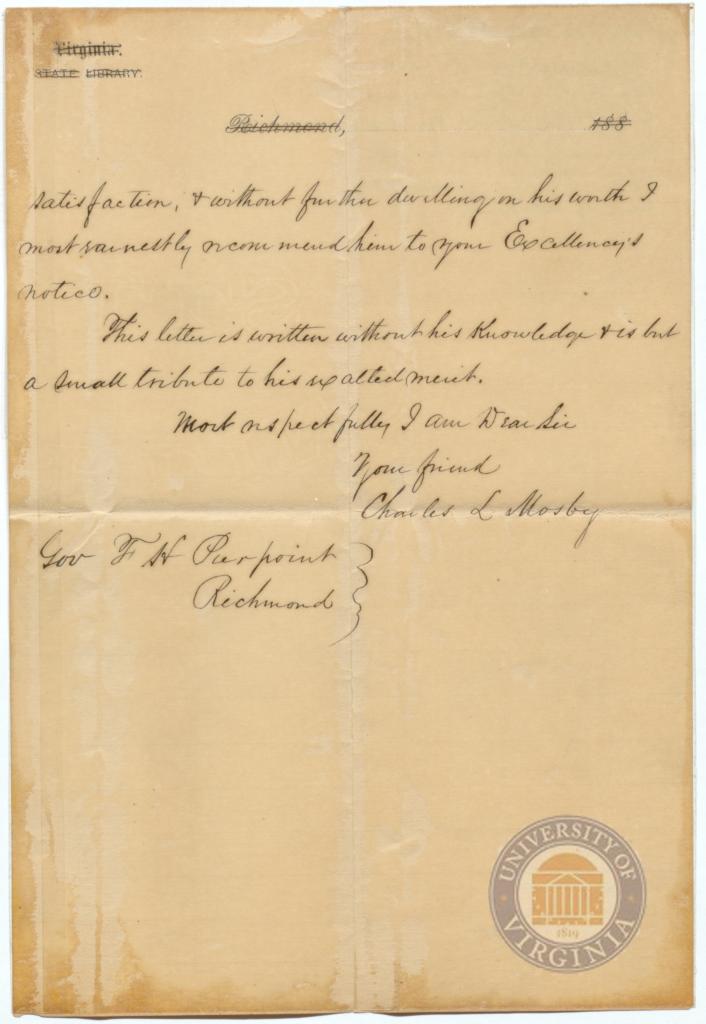 Virginia.
STATE LIBRARY.
Richmond, 188
satisfaction, & without further dwelling on his worth I
most earnestly recommend him to your Excellency's
notice.
This letter is written without his Knowledge & is but
a small tribute to his exalted merit.
Most respectfully I am Dear Sir
Your friend
Charles L Mosby
Gov F H Pierpoint
Richmond
UNIVERSITY OF
1819
VIRGINIA